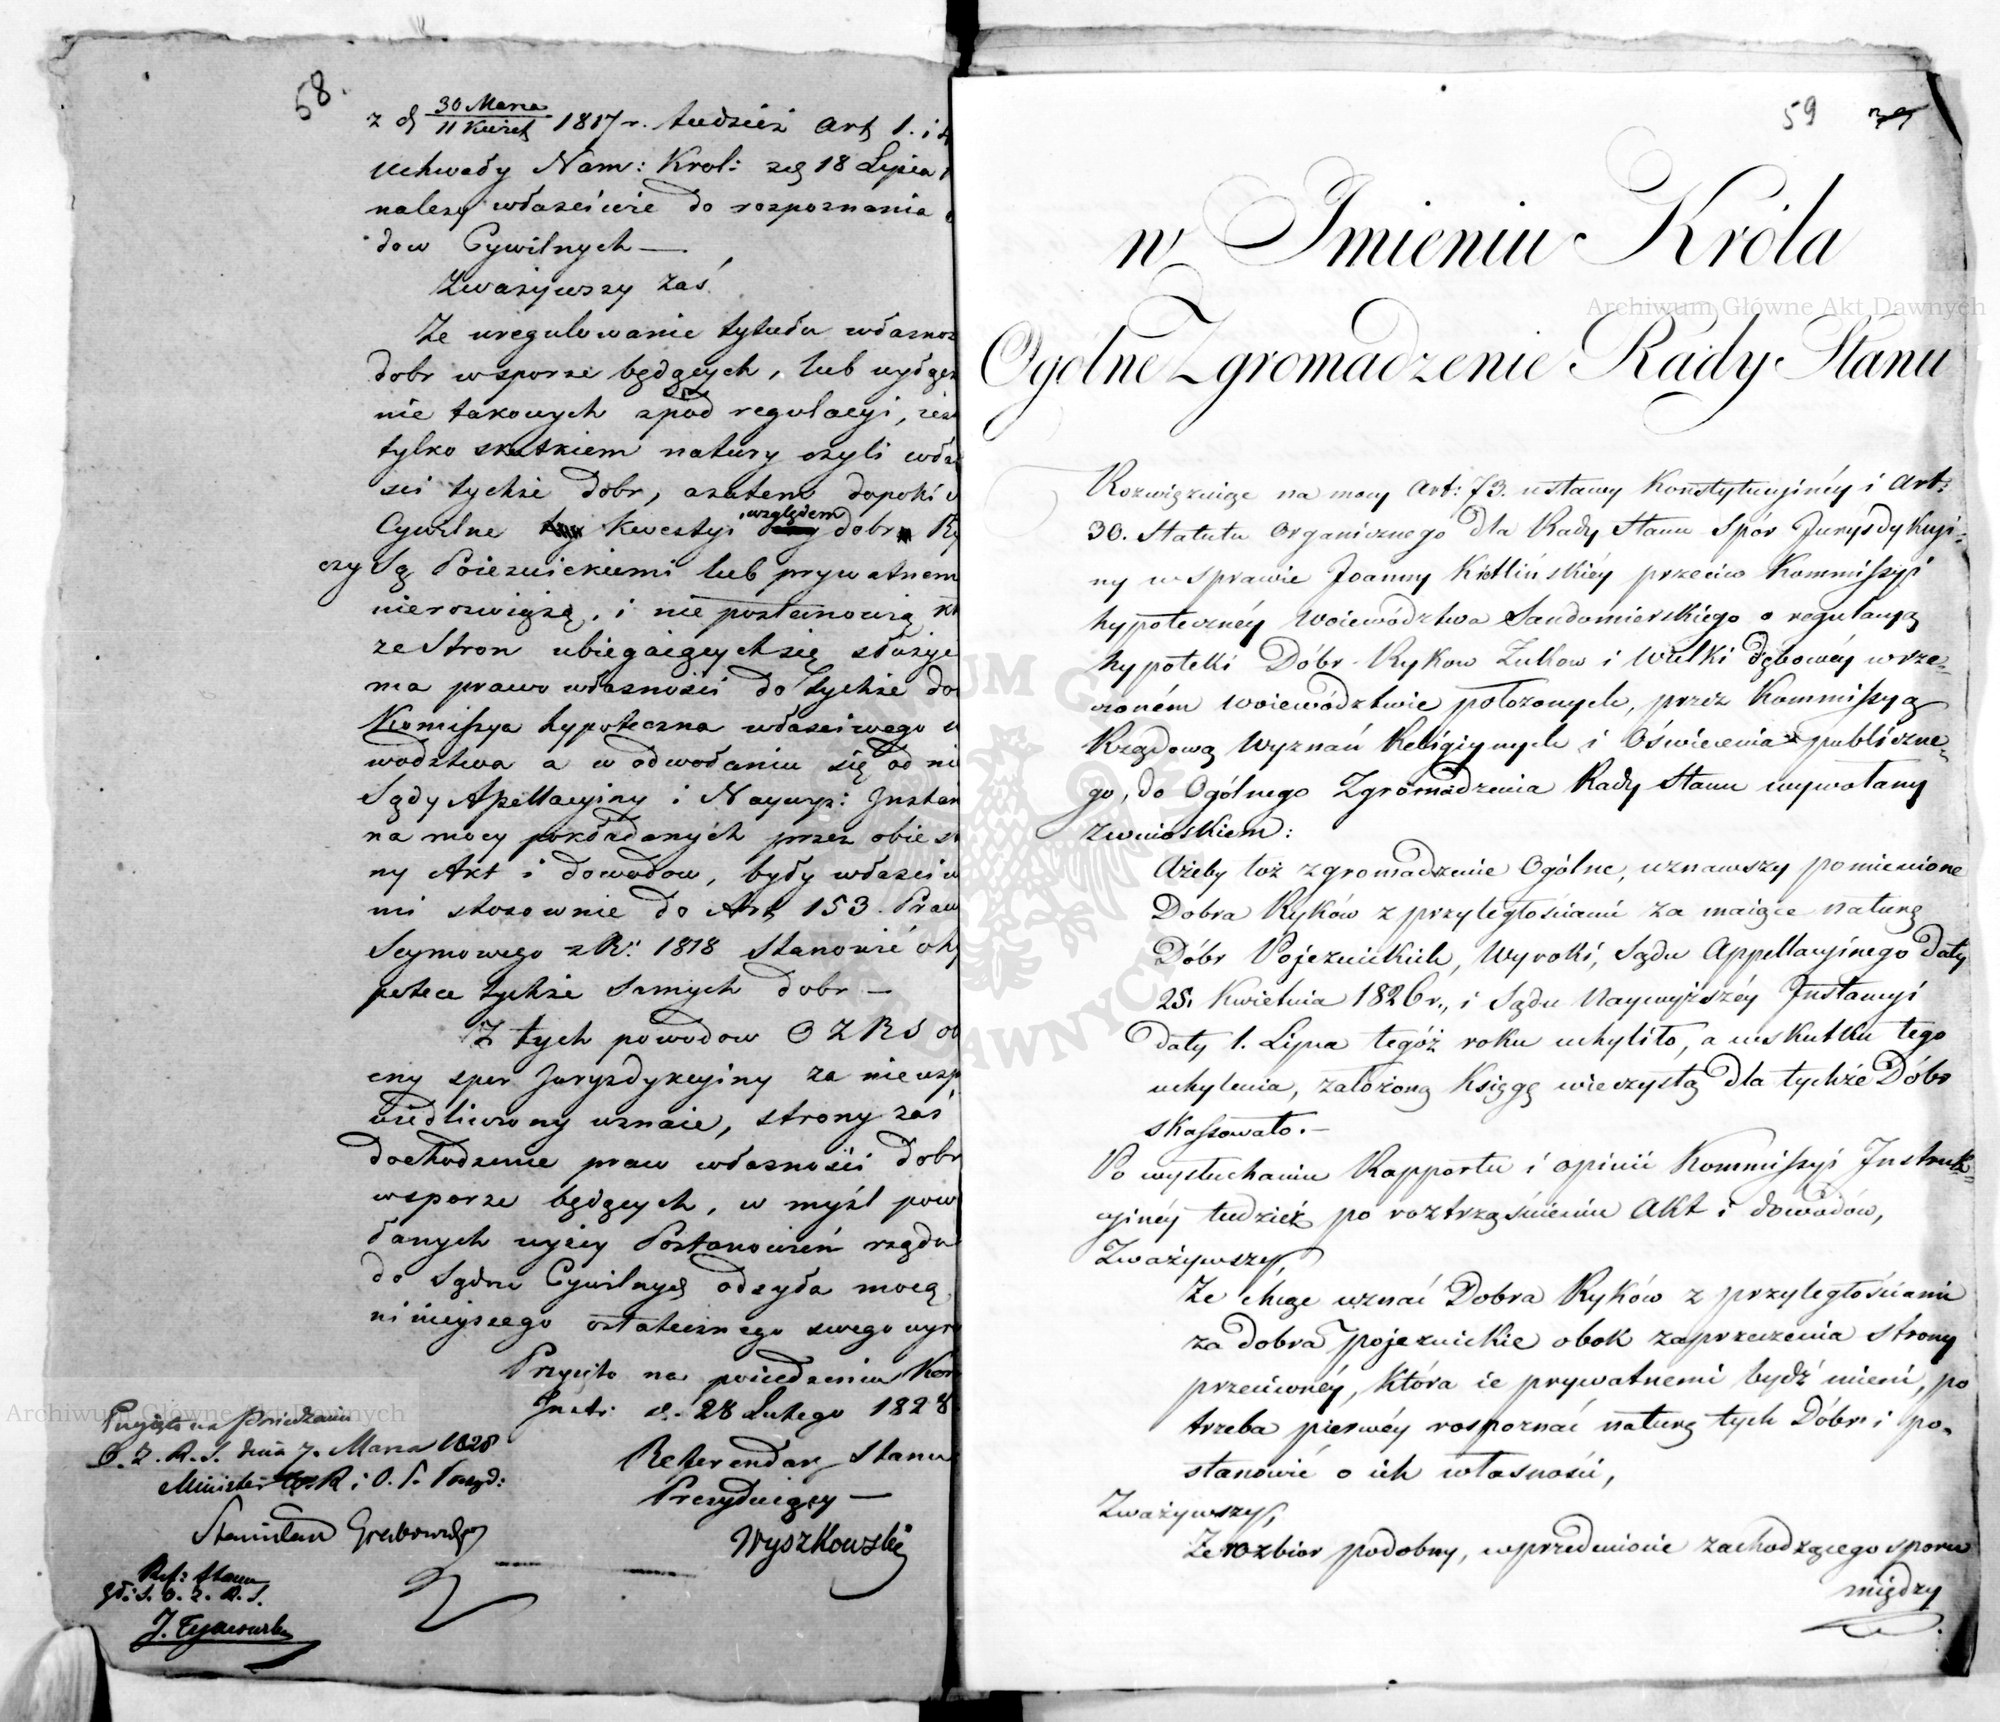 58.
z d. 30 Marca / 11 Kwiet. 1817 r. tudzież Art. 1. i
Uchwały Nam: Krol: z d. 18 Lipca
należy właściwie do rozpoznania
dow Cywilnych —
Zważywszy zaś
Ze uregulowanie tytułu własnoś
dobr w sporze będących, lub wyłącz
nie takowych z pod regulacyi, iest
tylko skutkiem natury czyli włas
ści tychże dobr, azatem dopoki
Cywilne kwestyi względem dobr
czy Są Poiezuickiemi lub prywatnem
nierozwiążą, i nie postanowią
ze Stron ubiegaiących się służyć
ma prawo własności do tychże do
Komissya hypoteczna właściwego
wodztwa a w odwołaniu się od ni
Sądy Apellacyiny i Naywyż: Instan
na mocy pokładanych przez obie
ny Akt i dowodow, były właściw
mi stosownie do Art. 153. Praw
Seymowego z R: 1818 stanowić o hy
potece tychże samych dobr —
Z tych powodow O Z R S ob
cny spor Jurysdykcyiny za nieusp
wiedliwiony uznaie, strony zaś
dochodzenie praw własności dobr
w sporze będących, w myśl pow
łanych wyżey Postanowień rządu
do Sądow Cywilnych odsyła mocą
ninieyszego ostatecznego swego wyro
Przyięto na posiedzeniu Kom
Instr: d. 28 Lutego 1828
Referendarz Stanu
Prezyduiący —
Wyszkowski
Przyięto na Posiedzeniu
O. Z. R. S. dnia 7. Marca 1828
Minister W R i O. P. Prezyd:
Stanisław Grabowski
Ref: Stanu
J. Tymowski
59
w Imieniu Króla
Ogólne Zgromadzenie Rady Stanu
Rozwiązuiąc na mocy Art: 73. ustawy Konstytucyinéy i Art:
30. Statutu Organicznego dla Rady Stanu Spór Jurysdykcyi-
ny w sprawie Joanny Kietlińskiéy przeciw Kommissyi
hypotecznéy Woiewództwa Sandomierskiego o regulacyą
hypoteki Dóbr Rykow Zukow i Wulki dębowéy w rze-
czoném woiewództwie położonych, przez Kommissyą
Rządową Wyznań Religiynych i Oświecenia publiczne-
go, do Ogólnego Zgromadzenia Rady Stanu wywołany
z wnioskiem:
Ażeby toż zgromadzenie Ogólne, uznawszy pomienione
Dobra Ryków z przyległościami za maiące naturę
Dóbr Pojezuickich, Wyroki, Sądu Appellacyinego daty
25. Kwietnia 1826 r., i Sądu Naywyższéy Instancyi
daty 1. Lipca tegóż roku uchyliło, a w skutku tego
uchylenia, założoną Księgę wieczystą dla tychże Dóbr
skassowało. —
Po wysłuchaniu Rapportu i opinii Kommissyi Instruk-
cyinéy tudzież po roztrząśnieniu Akt i dowodów,
Zważywszy,
Ze chcąc uznać Dobra Ryków z przyległościami
za dobra pojezuickie obok zaprzeczenia strony
przeciwnéy, która ie prywatnemi bydź mieni, po
trzeba pierwéy rospoznać naturę tych Dóbr i po-
stanowić o ich własności,
Zważywszy,
Ze rozbiór podobny, uprzedzenie zachodzącego sporu
między
Archiwum Główne Akt Dawnych
Archiwum Główne Akt Dawnych